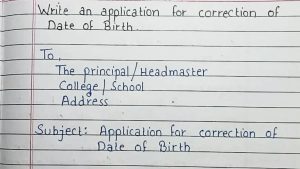 Write an application for correction of
Date of Birth.
To,
The principal/Headmaster
College/School
Address
Subject: Application for correction of
Date of Birth